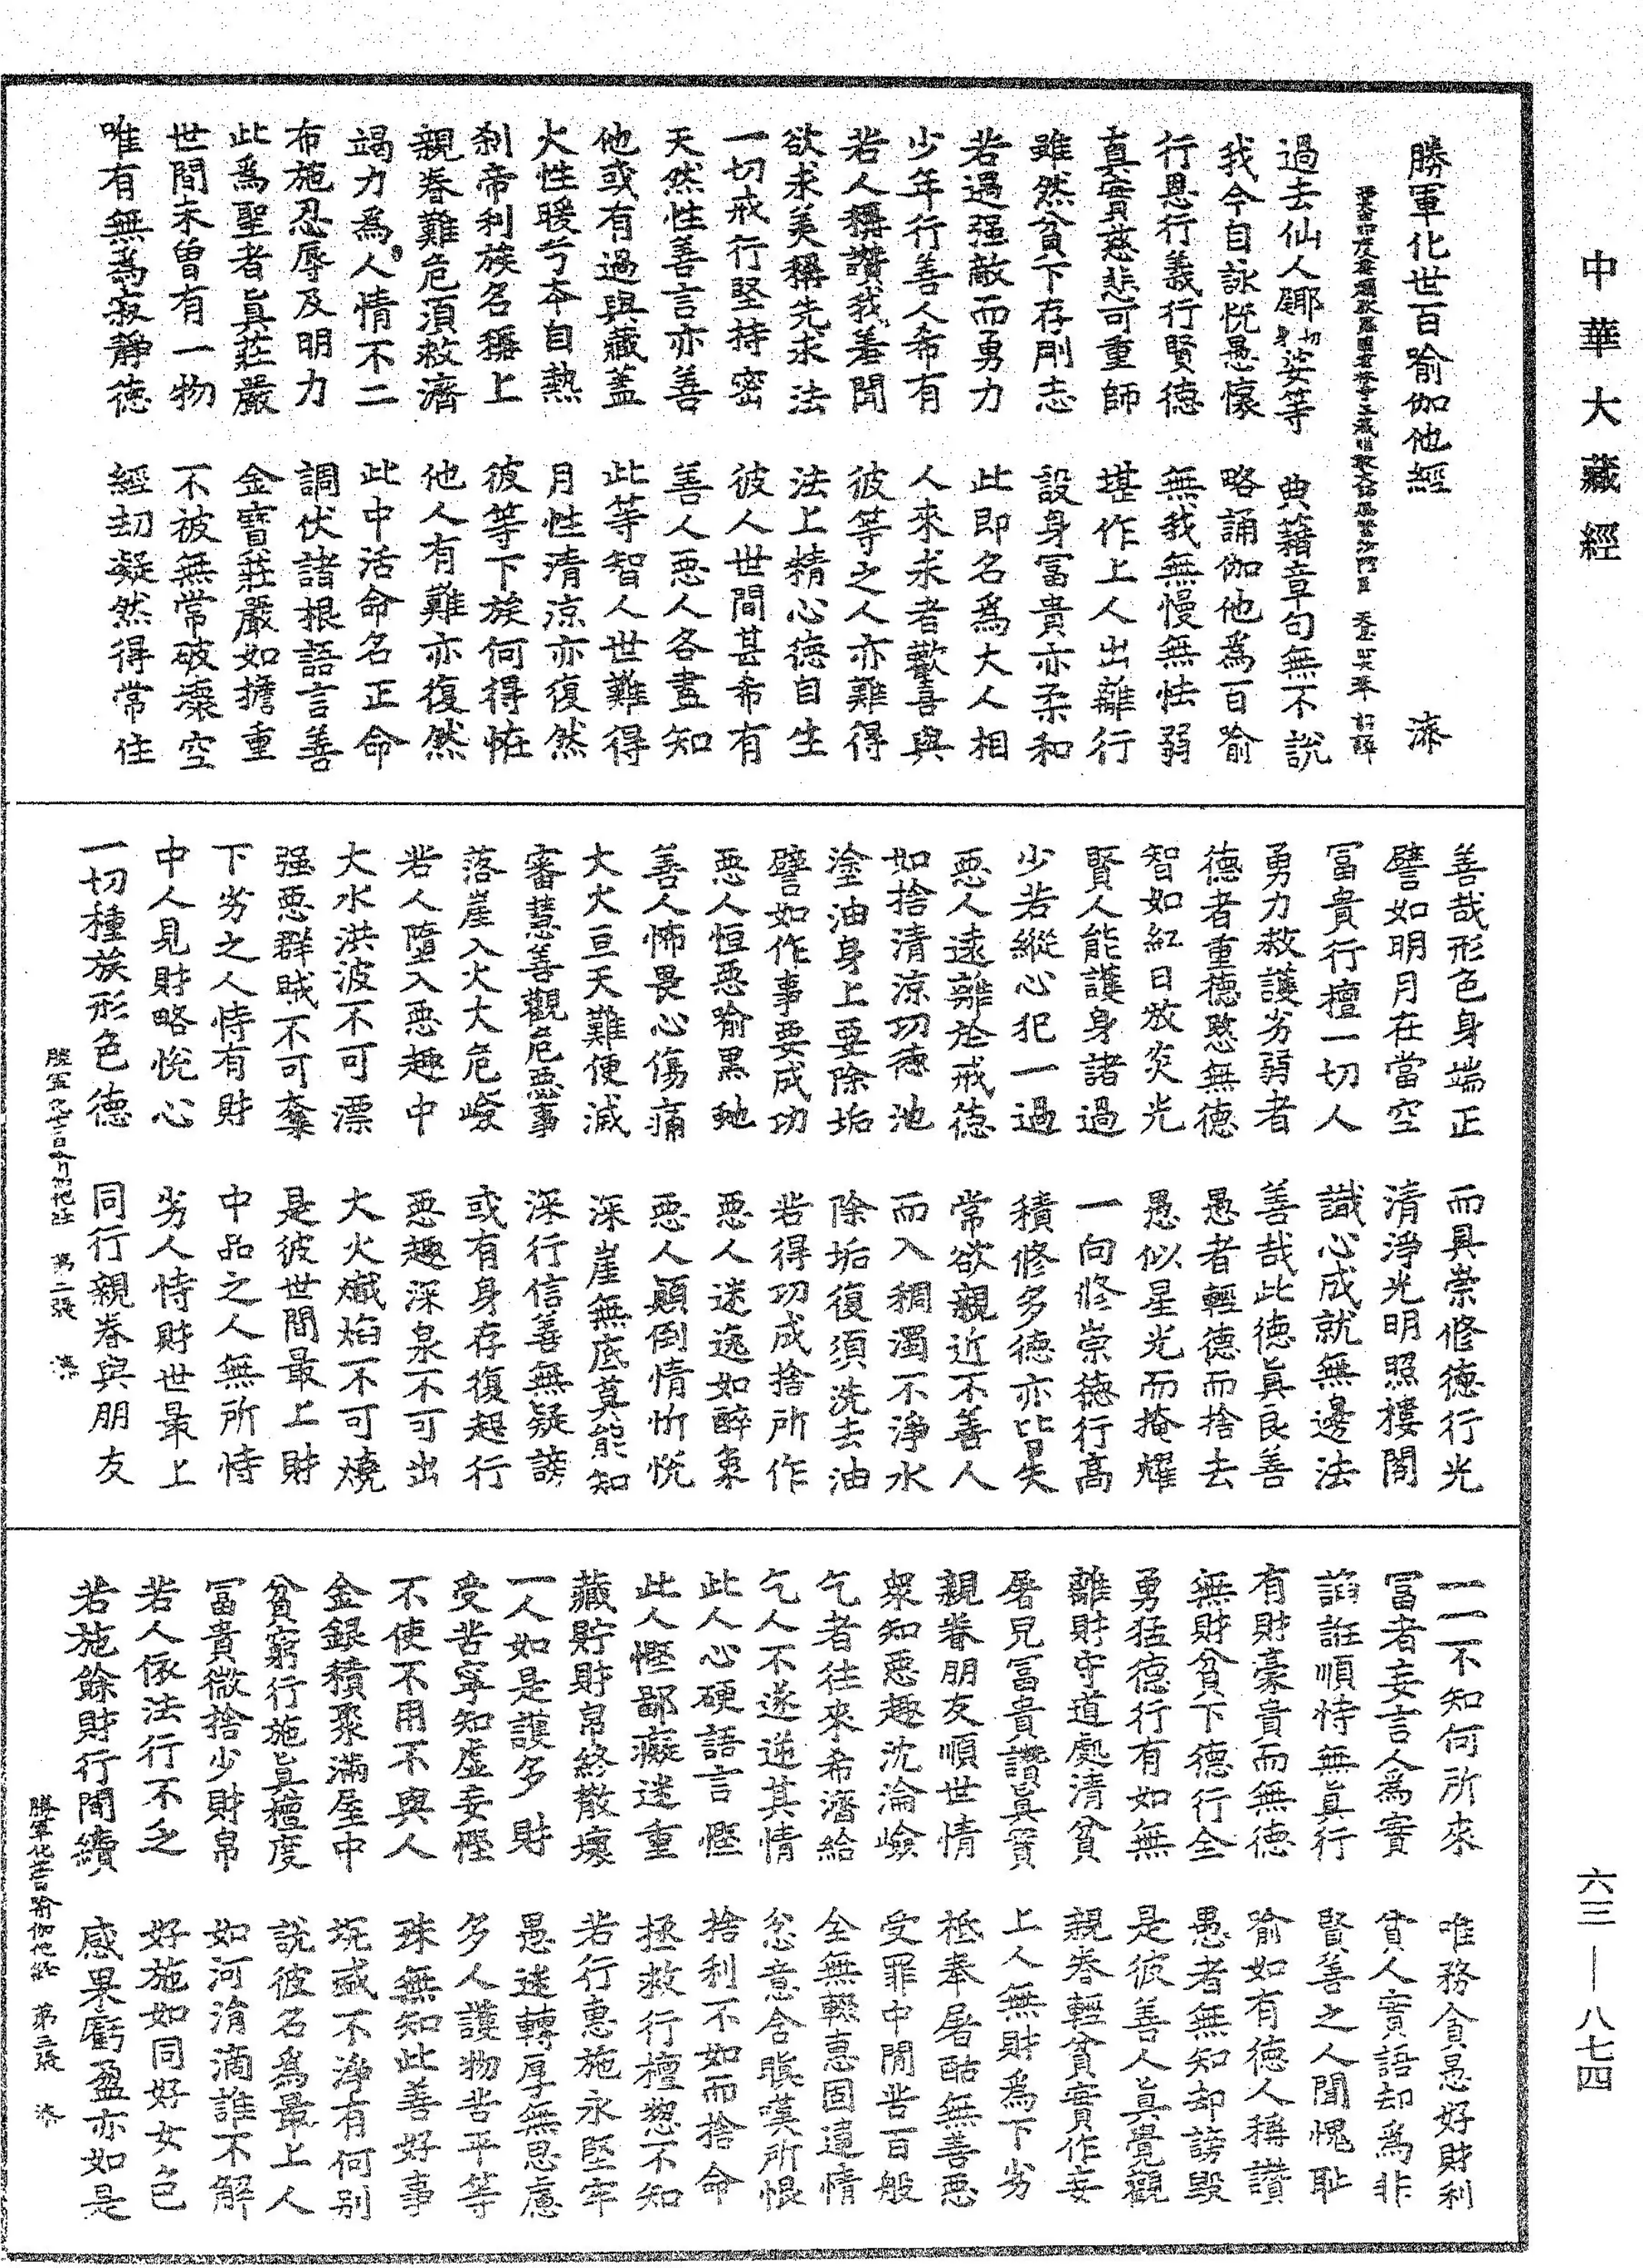 中華大藏經
勝軍化世百喻伽他經　添
過去仙人廨切身娑等　典籍章句無不說
我今自詠悅愚懷　略誦伽他為百喻
行恩行義行賢德　無我無慢無怯弱
真實慈悲可重師　堪作上人出離行
雖然貧下存剛志　設身冨貴亦柔和
若遇强敵而勇力　此即名為大人相
少年行善人希有　人來求者歡喜與
若人稱讚我善聞　彼等之人亦難得
欲求美稱先求法　法上精心德自生
一切戒行堅持密　彼人世間甚希有
天然性善言亦善　善人惡人各盡知
他或有過與藏蓋　此等智人世難得
火性暖兮本自熱　月性清涼亦復然
剎帝利族名稱上　彼等下族何得恠
親眷難危須救濟　他人有難亦復然
竭力為人情不二　此中活命名正命
布施忍辱及明力　調伏諸根語言善
此為聖者真莊嚴　金寶莊嚴如擔重
世間未曾有一物　不被無常破壞空
唯有無為寂靜德　經劫凝然得常住
善哉形色身端正　而具崇修德行光
譬如明月在當空　清淨光明照樓閣
冨貴行檀一切人　識心成就無邊法
勇力救護劣弱者　善哉此德真良善
德者重德愍無德　愚者輕德而捨去
智如紅日放炎光　愚似星光而掩耀
賢人能護身諸過　一向修崇德行高
少若縱心犯一過　積修多德亦皆失
惡人遠離於戒德　常欲親近不善人
如捨清涼功德池　而入稠濁不淨水
塗油身上要除垢　除垢復須洗去油
譬如作事要成功　若得功成捨所作
惡人恒惡喻黑虵　惡人迷逸如醉象
善人怖畏心傷痛　惡人顛倒情忻悅
大火亘天難便滅　深崖無底莫能知
審慧善觀危惡事　深行信善無疑謗
落崖入火大危嶮　或有身存復起行
若人墮入惡趣中　惡趣深泉不可出
大水洪波不可漂　大火熾焰不可燒
强惡群賊不可奪　是彼世間最上財
下劣之人恃有財　中品之人無所恃
中人見財略悅心　劣人恃財世最上
一切種族形色德　同行親眷與朋友
勝軍化世百喻伽他經　第二張　添
一一不知何所來　唯務貪愚好財利
冨者妄言人為實　貧人實語却為非
諂誑順恃無真行　賢善之人聞愧耻
有財豪貴而無德　喻如有德人稱讚
無財貧下德行全　愚者無知却謗毀
勇猛德行有如無　是彼善人真覺觀
離財守道處清貧　親眷輕貧實作妄
屠兒冨貴讚真實　上人無財為下劣
親眷朋友順世情　袛奉屠酤無善惡
衆知惡趣沈淪嶮　受罪中閒苦百般
乞者往來希濟給　全無輟惠固違情
乞人不遂逆其情　忿意含瞋嘆所恨
此人心硬語言慳　捨利不如而捨命
此人慳鄙癡迷重　拯救行檀惣不知
藏貯財帛終散壞　若行惠施永堅牢
一人如是護多財　愚迷轉厚無思慮
受苦寧知虛妄慳　多人護物苦平等
不使不用不與人　殊無知此善好事
金銀積聚滿屋中　坑或不淨有何別
貧窮行施真檀度　說彼名為最上人
冨貴微捨少財帛　如河涓滴誰不解
若人依法行不乏　好施如同好女色
若施餘財行間續　感果虧盈亦如是
勝軍化世百喻伽他經　第三張　添
六三—八七四